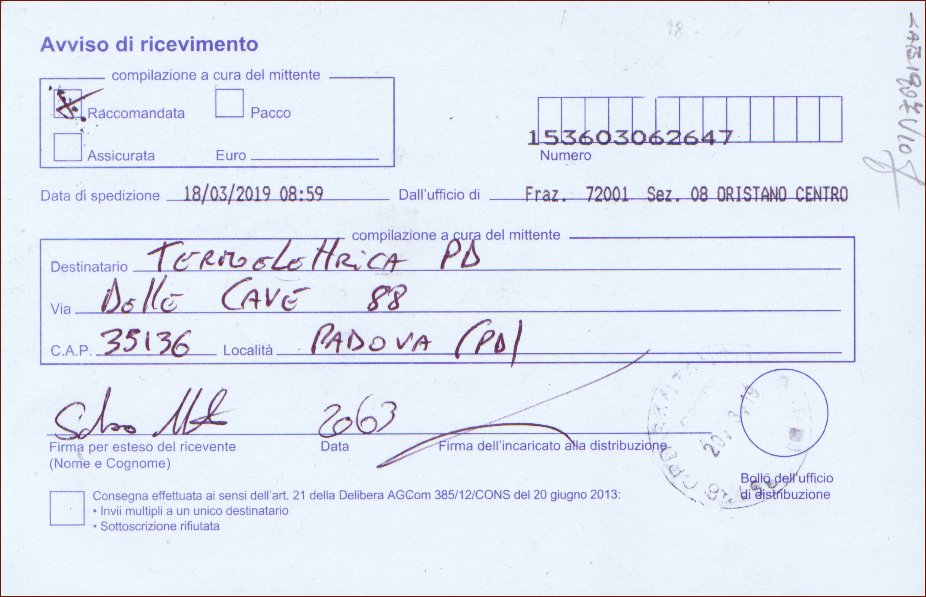 Avviso di ricevimento
compilazione a cura del mittente
Raccomandata Pacco
Assicurata Euro
153603062647
Numero
Data di spedizione 18/03/2019 08:59 Dall'ufficio di Fraz. 72001 Sez. 08 ORISTANO CENTRO
compilazione a cura del mittente
Destinatario TERMOELETTRICA PD
Via DELLE CAVE 88
C.A.P. 35136 Località PADOVA (PD)
2063
Firma per esteso del ricevente Data Firma dell'incaricato alla distribuzione
(Nome e Cognome)
Bollo dell'ufficio
di distribuzione
Consegna effettuata ai sensi dell'art. 21 della Delibera AGCom 385/12/CONS del 20 giugno 2013:
• Invii multipli a un unico destinatario
• Sottoscrizione rifiutata